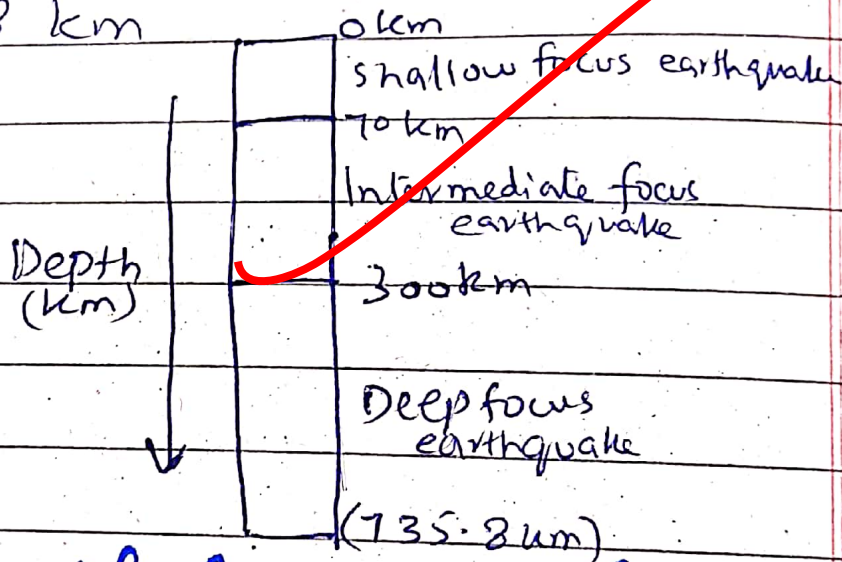 km
0km
shallow focus earthquake
70km
Intermediate focus
earthquake
Depth
(km)
300km
Deep focus
earthquake
(735.8km)